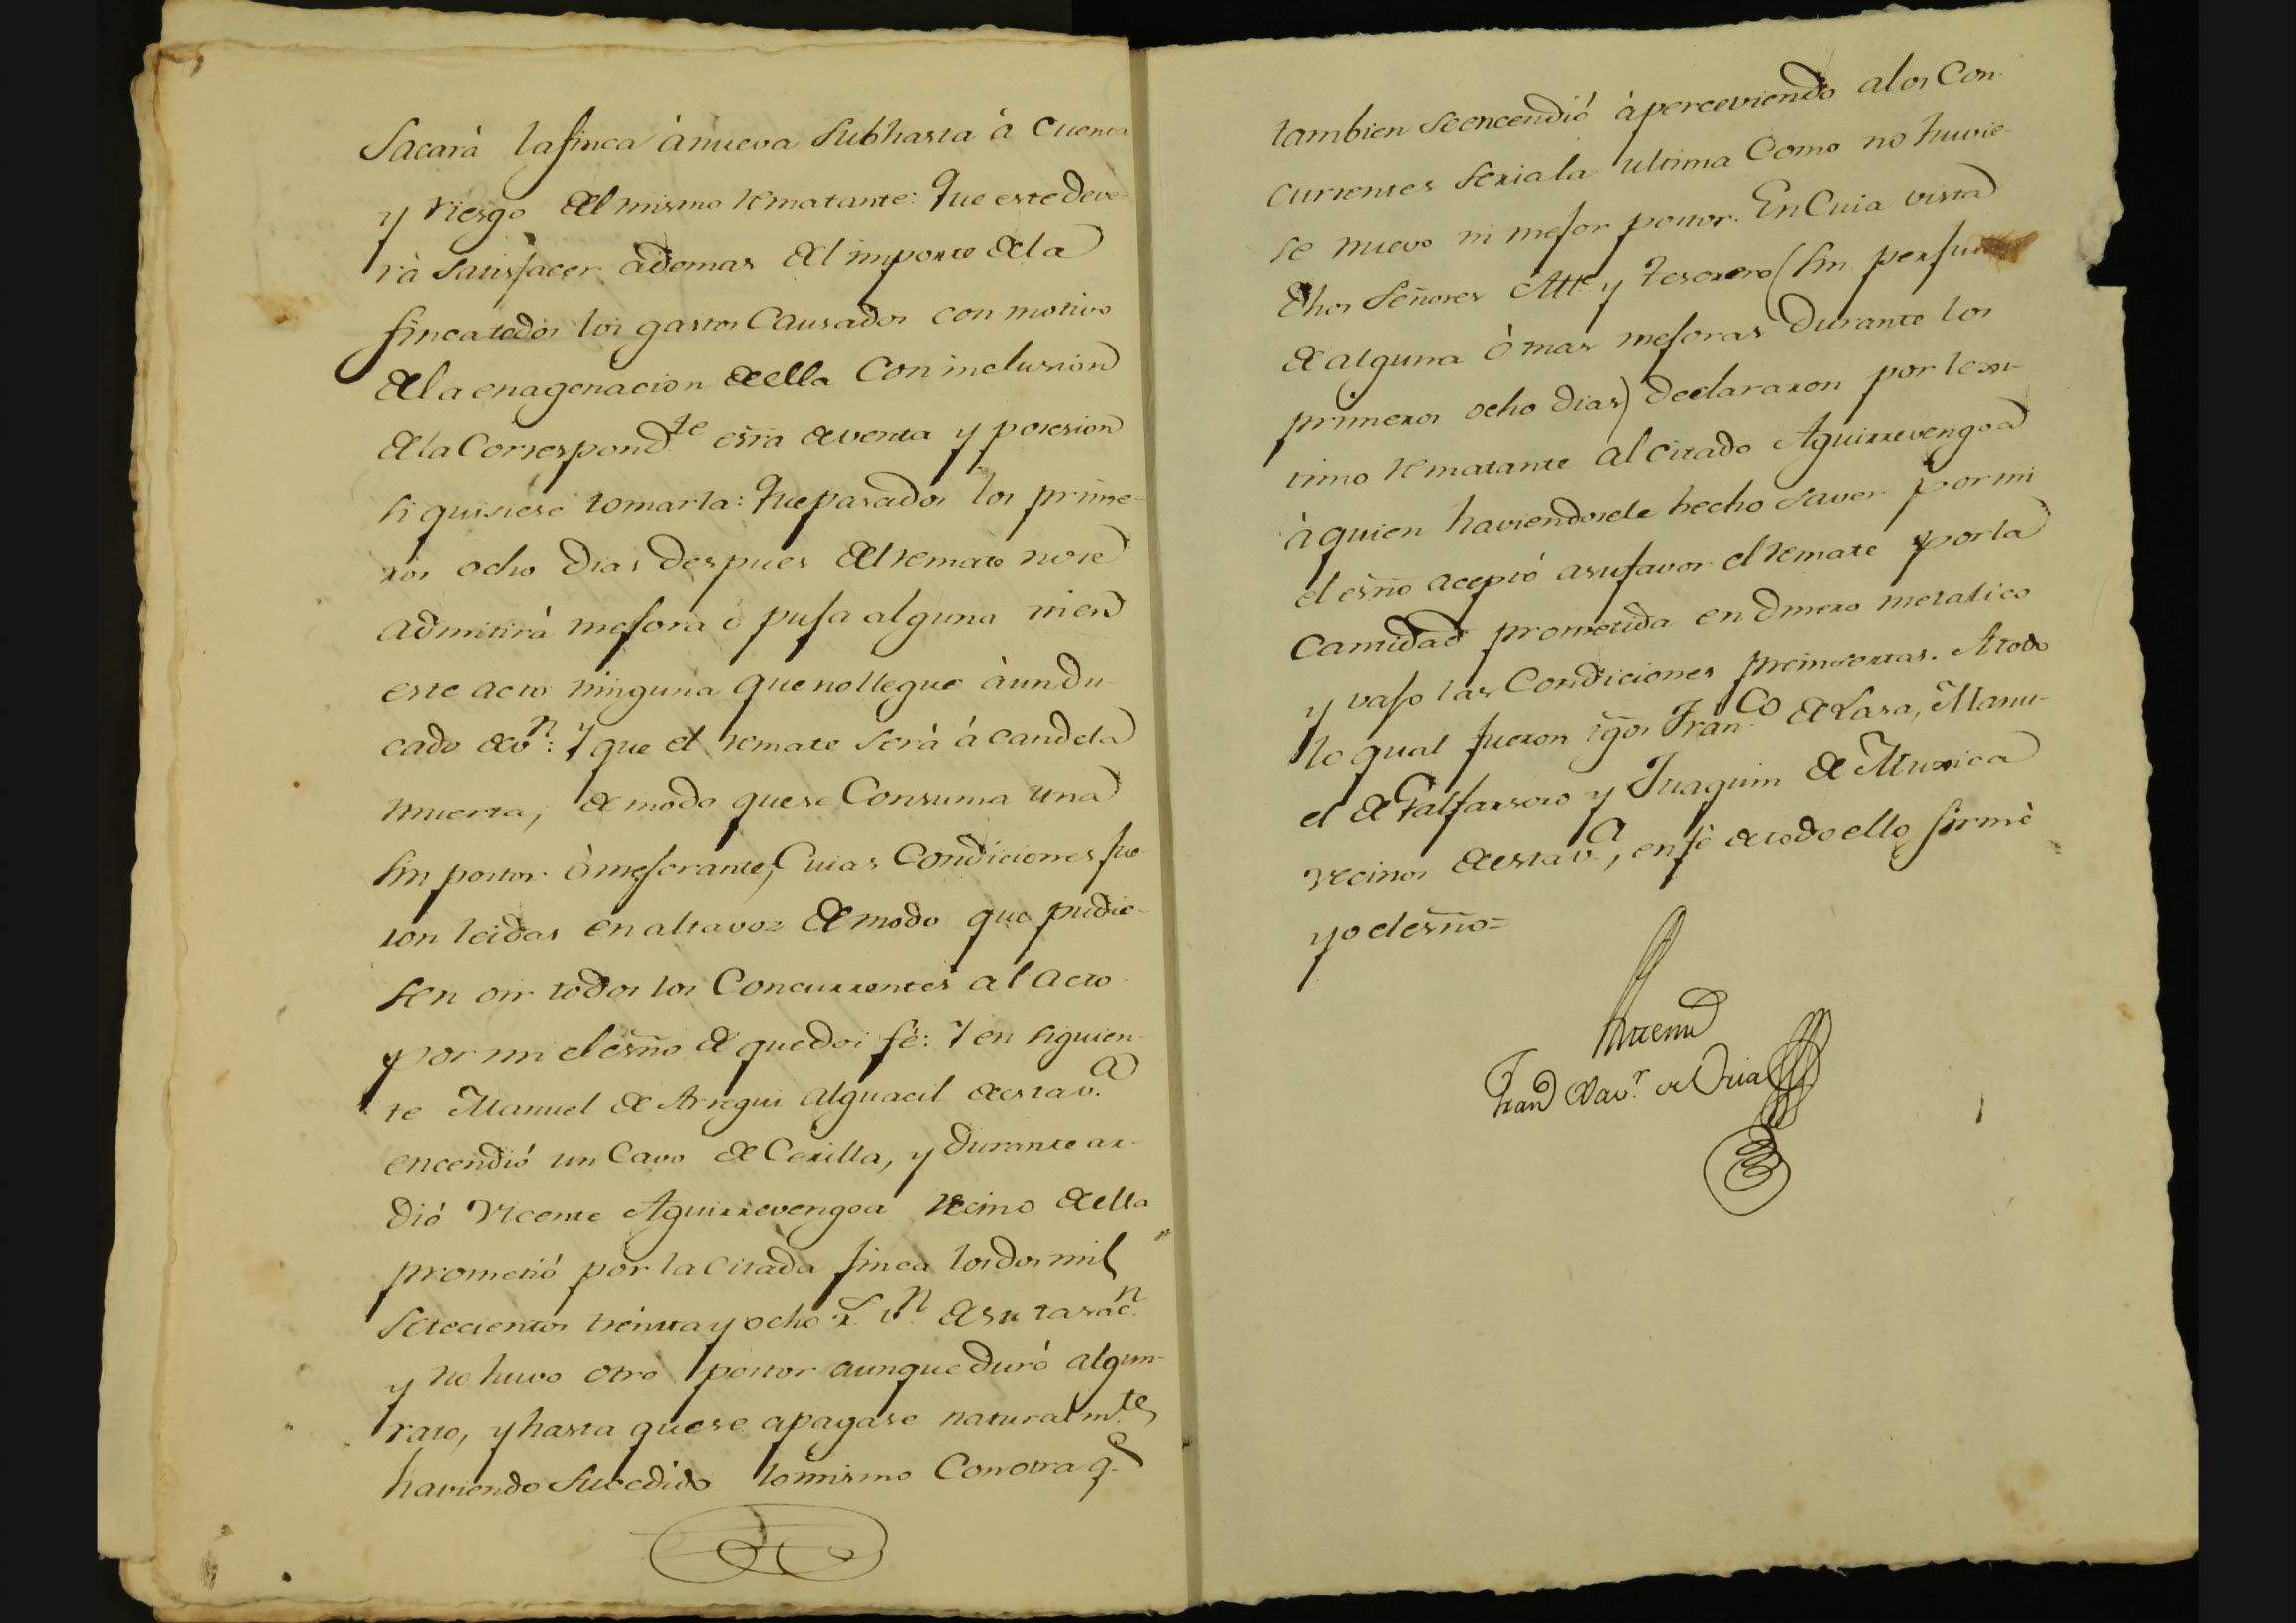 Sacarà la finca à nueva Subhasta à cuenta
y riesgo del mismo rematante: Que este deve-
rà Satisfacer ademas del importe de la
finca todos los gastos Causados con motivo
de la enagenacion de ella Con inclusion
de la Correspond.te esrã de venta y posesion
si quisiese tomarla: Que pasados los prime-
ros ocho Dias Despues del remate no se
admitirà mejora ò puja alguna ni en
este acto ninguna que no llegue à un du-
cado de v.n: Y que el remate serà à candela
muerta, de modo que se Consuma una
sin postor ò mejorante; Cuias Condiciones fue-
ron leidas en alta voz de modo que pudie-
sen oir todos los Concurrentes al acto
por mi el esño de que doi fé: Y en siguien-
te Manuel de Arregui Alguacil de esta v.a
encendió un Cavo de Cerilla, y durante ar-
dió Vicente Aguirrevengoa vecino de ella
prometió por la citada finca los dos mil
setecientos treinta y ocho r.s v.n de su tasac.n
y no huvo otro postor aunque duró algun
rato, y hasta que se apagase naturalm.te
haviendo Sucedido lo mismo Con otra q.e
tambien se encendió àperceviendo a los Con-
currentes seria la ultima Como no huvie-
se nuevo ni mejor postor. En Cuia vista
dhos Señores Alle y Tesorero (sin perjui
de alguna ò mas mejoras durante los
primeros ocho dias) declararon por lexi-
timo rematante al citado Aguirrevengoa
à quien haviendosele hecho saver por mi
el esño aceptó a su favor el remate por la
Cantidad prometida en dinero metalico
y vajo las Condiciones preinsertas. A todo
lo qual fueron tgõs Fran.co de Lasa, Manu-
el de Galfarsoro y Juaquin de Muxica
vecinos de esta v.a, en fé de todo ello firmè
yo el esño=
Fran Xav.r de Oria